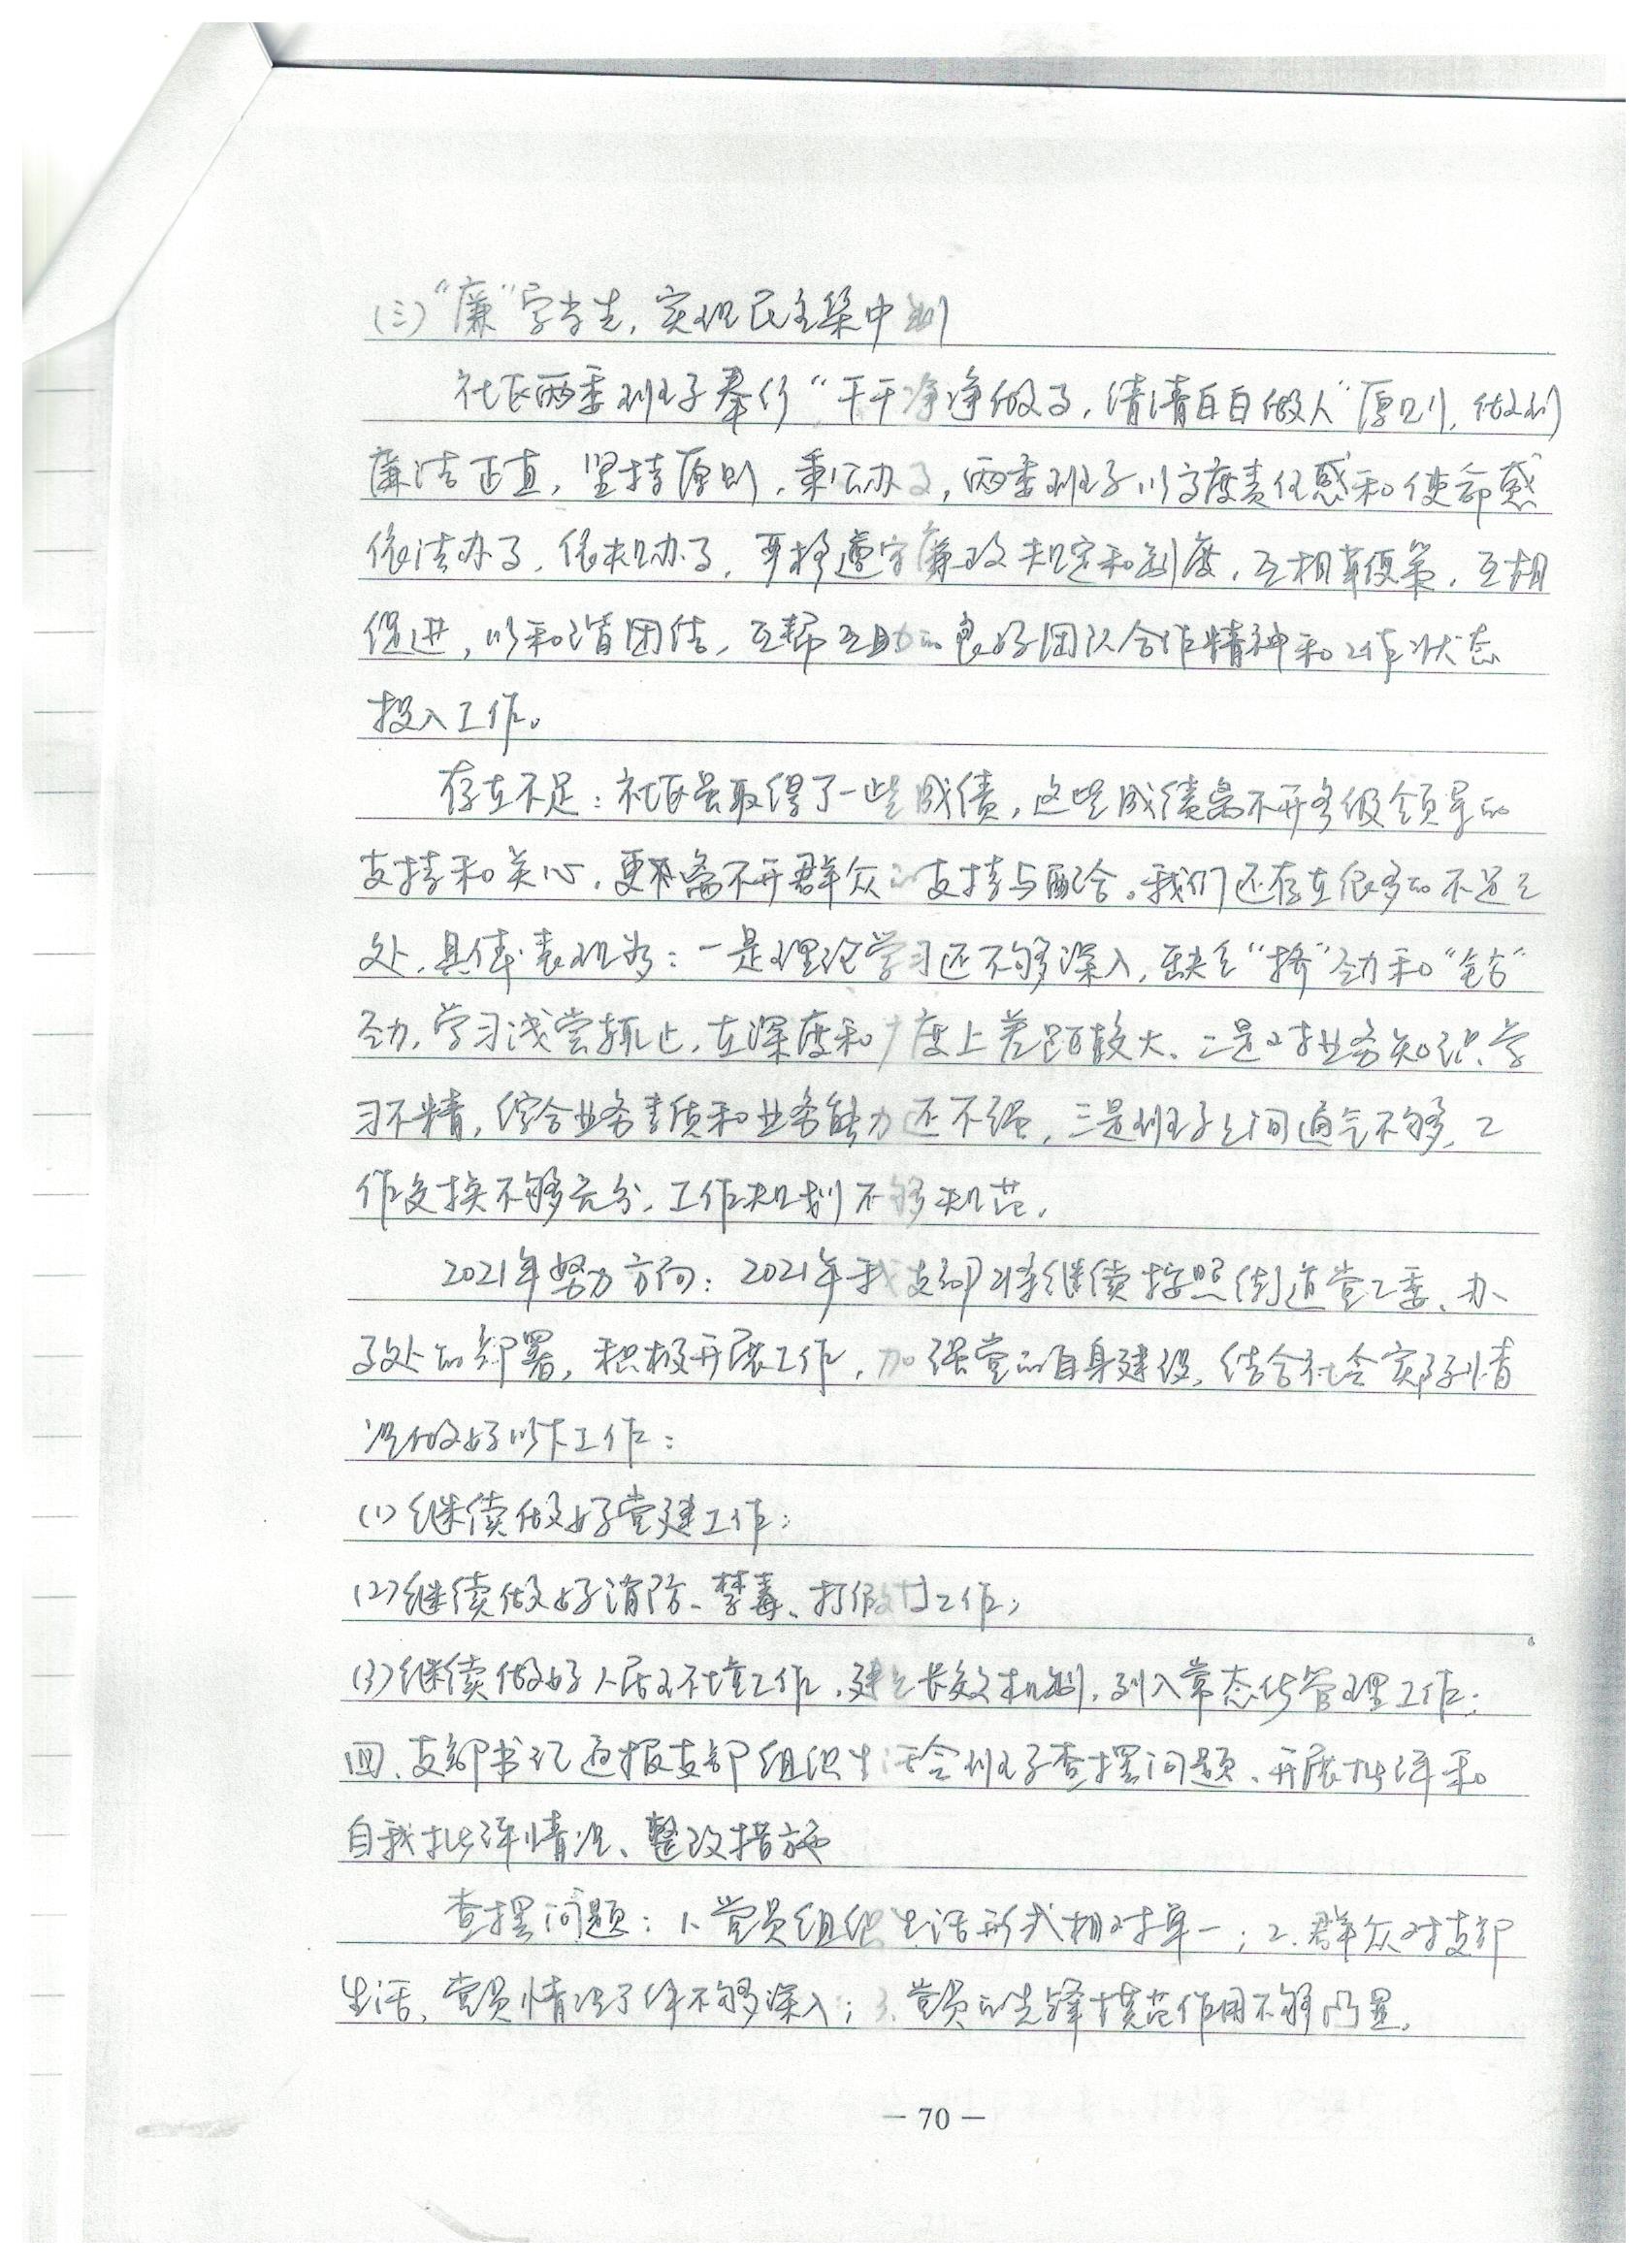 (三)“廉”字当先,实现民主集中制
社区两委班子奉行“干干净净做事,清清白白做人”原则,做到
廉洁正直,坚持原则,秉公办事,两委班子以高度责任感和使命感
依法办事,依规办事,严格遵守廉政规定和制度,互相鞭策,互相
促进,以和谐团结,互帮互助的良好团队合作精神和工作状态
投入工作。
存在不足:社区虽取得了一些成绩,这些成绩离不开各级领导的
支持和关心,更离不开群众的支持与配合。我们还存在很多的不足之
处,具体表现为:一是理论学习还不够深入,缺乏“挤”劲和“钻”
劲,学习浅尝辄止,在深度和广度上差距较大、二是对业务知识、学
习不精,综合业务素质和业务能力还不强,三是班子之间通气不够,工
作交换不够充分,工作规划不够规范。
2021年努力方向:2021年我支部将继续按照街道党工委、办
事处的部署,积极开展工作,加强党的自身建设,结合社会实际情
况做好以下工作:
(1)继续做好党建工作;
(2)继续做好消防、禁毒、打假打工作;
(3)继续做好人居环境工作,建立长效机制,列入常态化管理工作;
四、支部书记通报支部组织生活会班子查摆问题、开展批评和
自我批评情况、整改措施
查摆问题:1、党员组织生活形式相对单一;2.群众对支部
生活、党员情况了解不够深入;3.党员的先锋模范作用不够凸显。
— 70 —